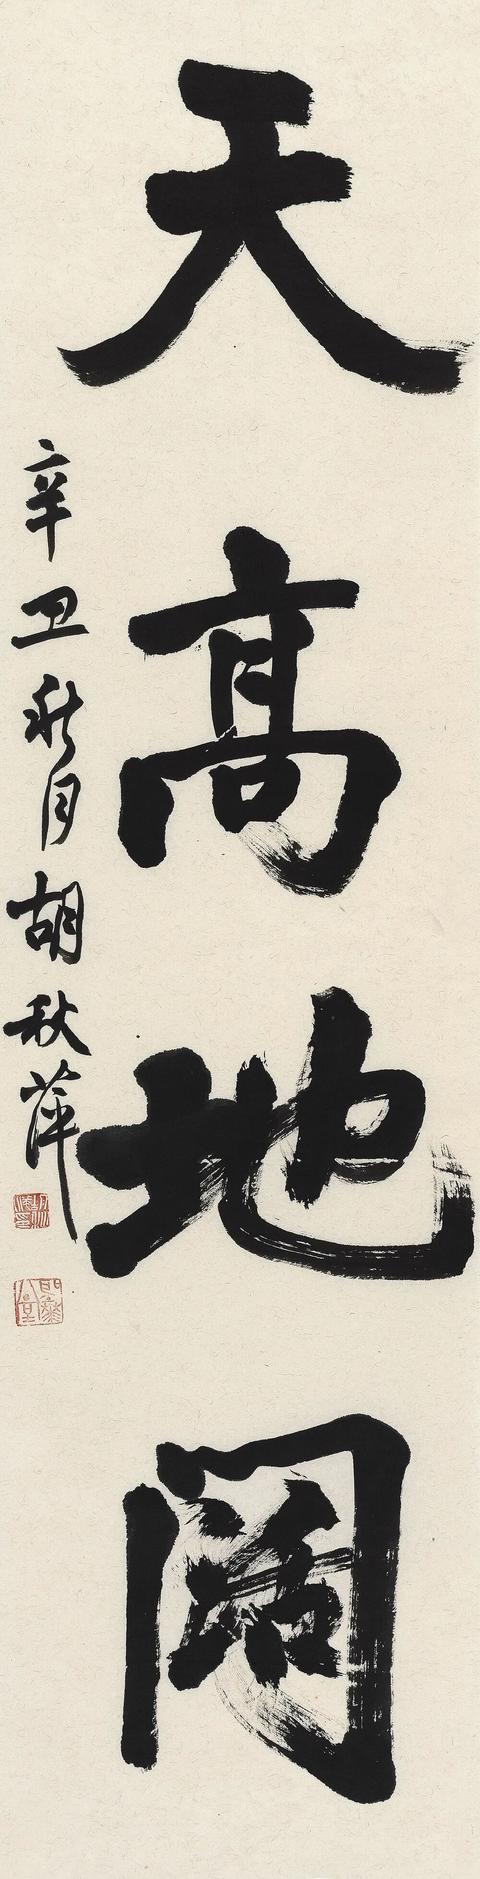 天高地阔
辛丑秋月胡秋萍